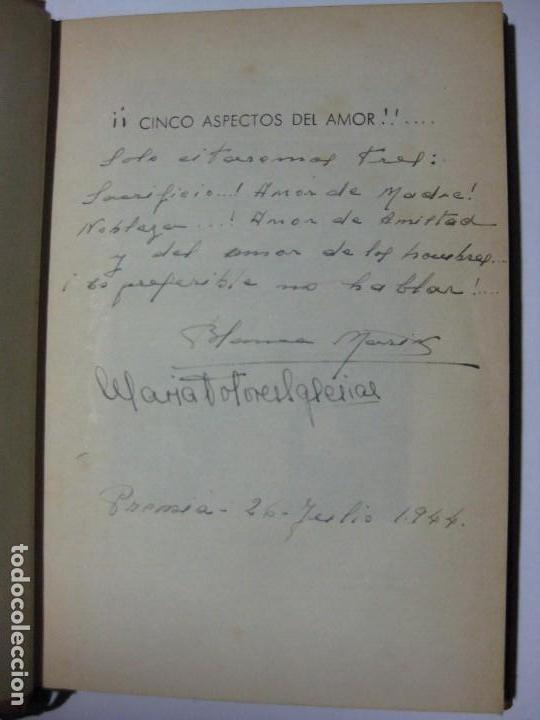 ¡¡ CINCO ASPECTOS DEL AMOR!!....
Solo citaremos tres:
Sacrificio...! Amor de Madre!
Nobleza ...! Amor de Amistad
y del amor de los hombres...
¡es preferible no hablar!...
Blanca
Maria Dolores Iglesias
Premiá - 26 - Julio 1.944.
todocoleccion